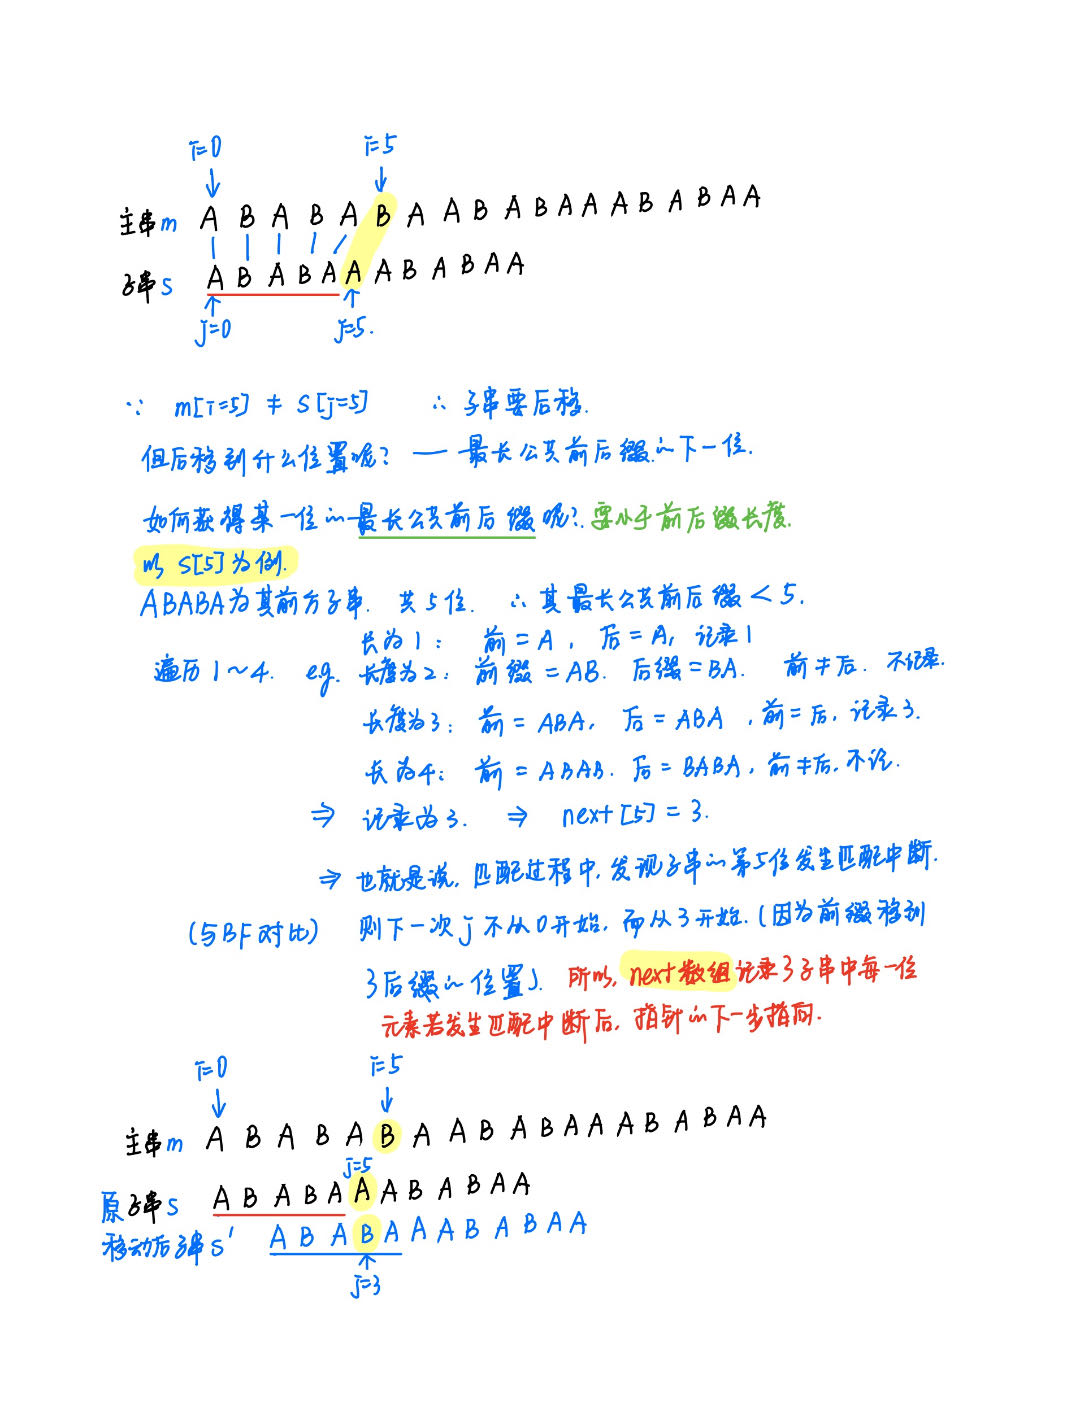 i=0 i=5
主串m A B A B A B A A B A B A A A B A B A A
子串s A B A B A A A B A B A A
j=0 j=5.
∵ m[i=5] ≠ s[j=5] ∴ 子串要后移.
但后移到什么位置呢? — 最长公共前后缀的下一位.
如何获得某一位的最长公共前后缀呢? 要小于前后缀长度.
以 s[5]为例.
ABABA为其前方子串. 共5位. ∴ 其最长公共前后缀 < 5.
长为1: 前=A, 后=A, 记录1
遍历1~4. eg. 长度为2: 前缀=AB. 后缀=BA. 前≠后. 不记录.
长度为3: 前=ABA, 后=ABA, 前=后, 记录3.
长为4: 前=ABAB. 后=BABA, 前≠后, 不记.
⇒ 记录为3. ⇒ next[5]=3.
⇒ 也就是说, 匹配过程中, 发现子串的第5位发生匹配中断.
(与BF对比) 则下一次j不从0开始, 而从3开始. (因为前缀移到
了后缀的位置). 所以, next数组记录了子串中每一位
元素若发生匹配中断后, 指针的下一步指向.
i=0 i=5
主串m A B A B A B A A B A B A A A B A B A A
j=5
原子串s A B A B A A A B A B A A
移动后子串s' A B A B A A A B A B A A
j=3